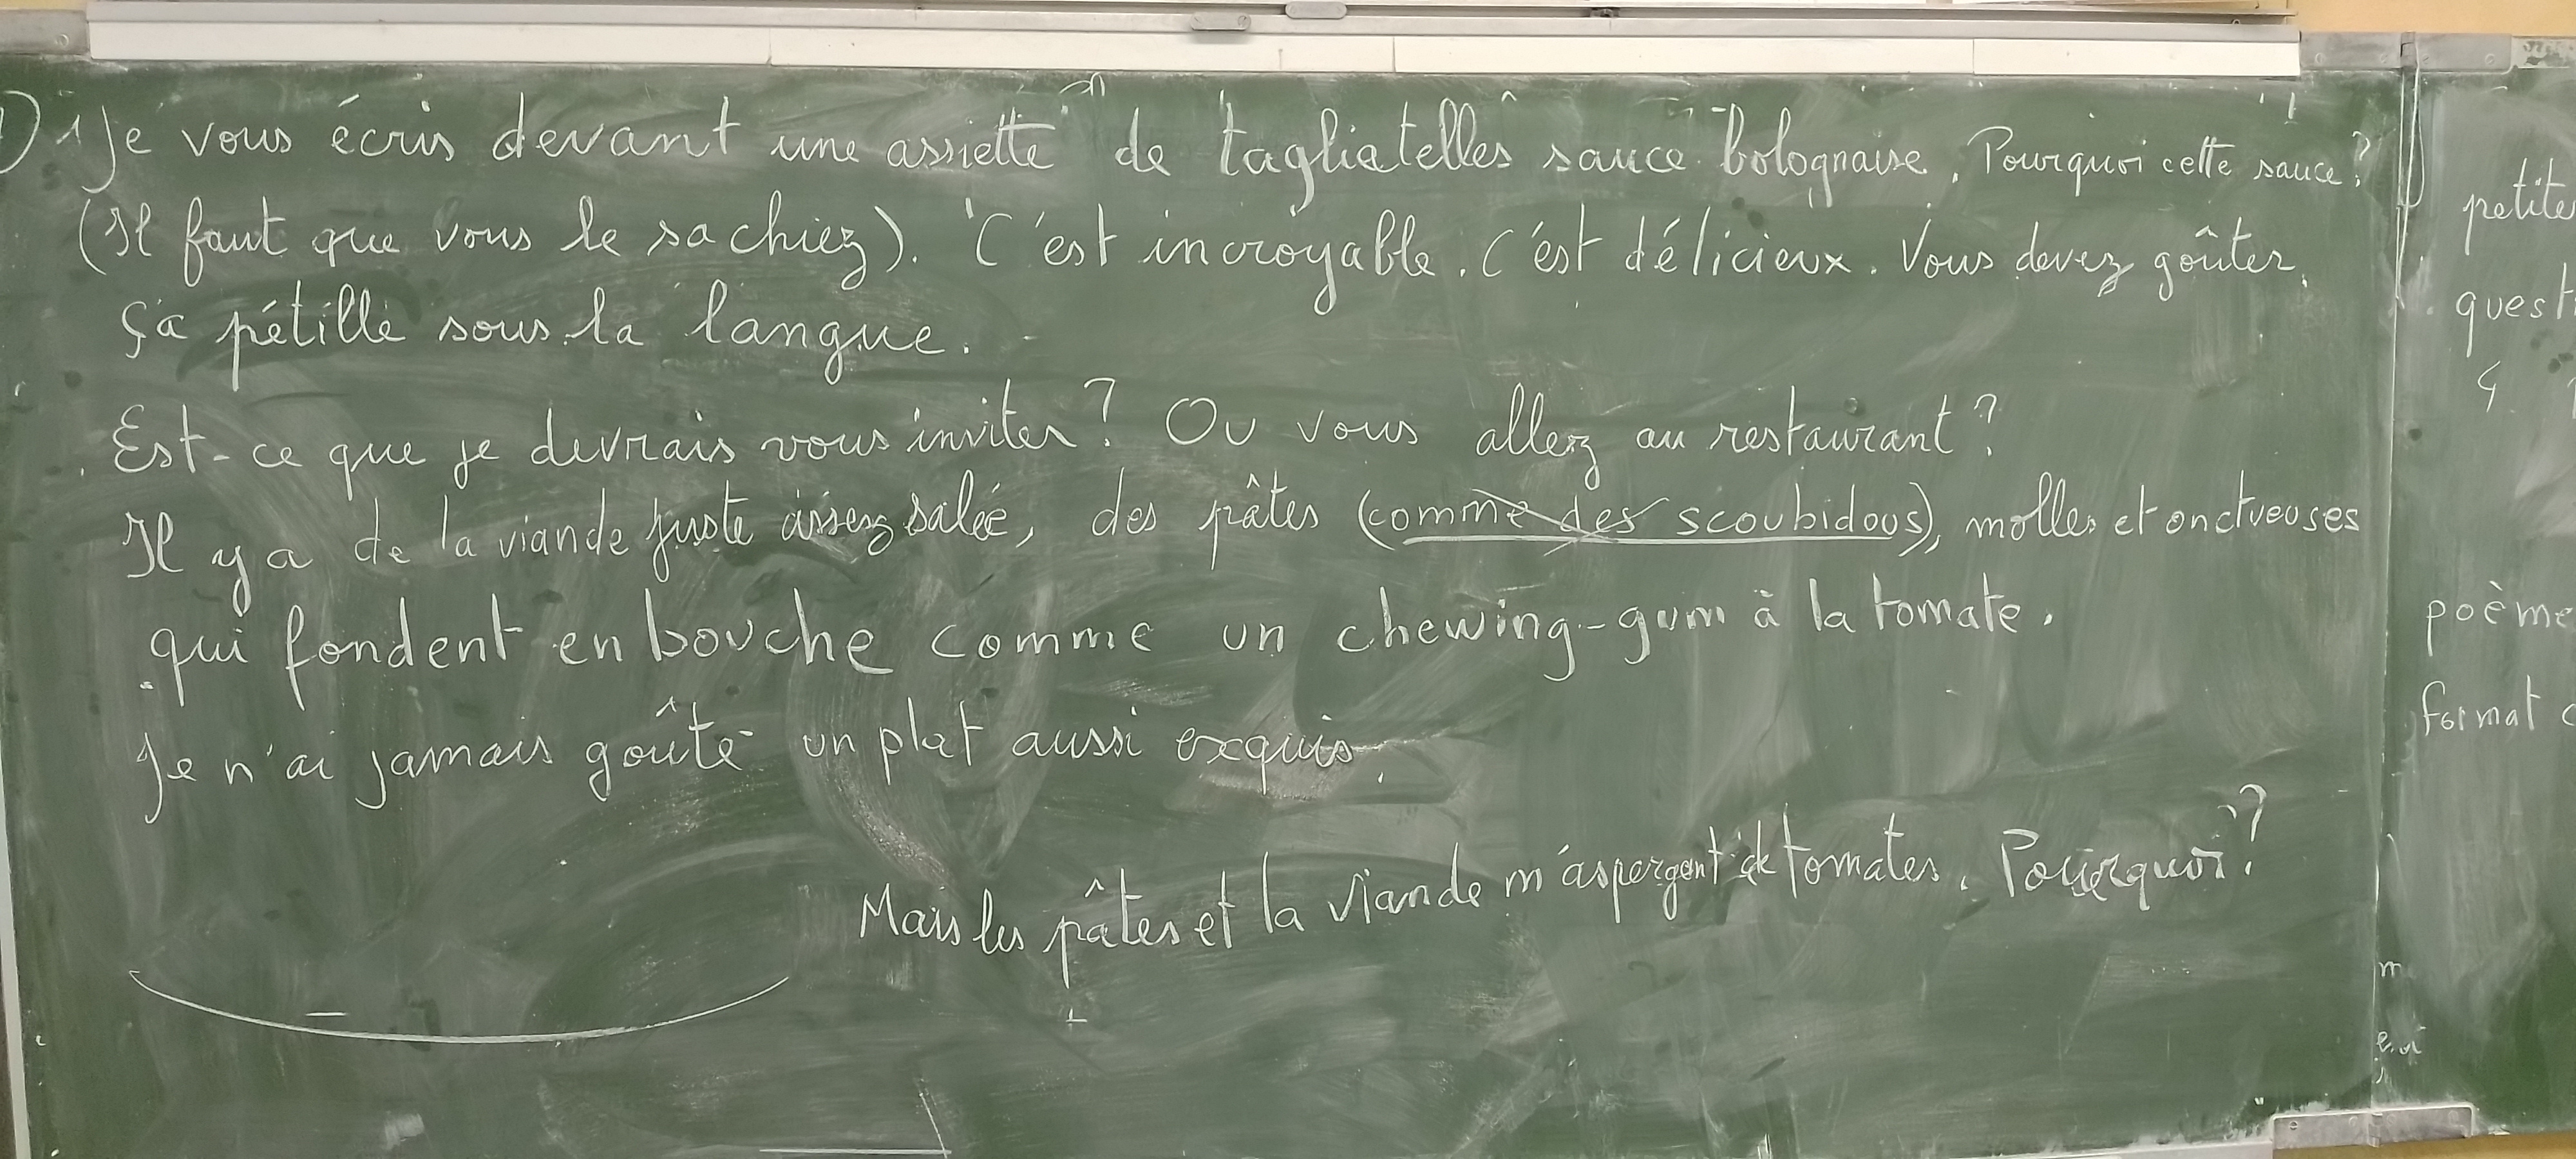 1) Je vous écris devant une assiette de tagliatelles sauce bolognaise. Pourquoi cette sauce ?
(Il faut que vous le sachiez). C'est incroyable. C'est délicieux. Vous devez goûter.
ça pétille sous la langue.
Est-ce que je devrais vous inviter ? Ou vous allez au restaurant ?
Il y a de la viande juste assez salée, des pâtes (comme des scoubidous), molles et onctueuses
qui fondent en bouche comme un chewing-gum à la tomate.
Je n'ai jamais goûté un plat aussi exquis.
Mais les pâtes et la viande m'aspergent de tomates. Pourquoi ?
petite
quest
poème
format